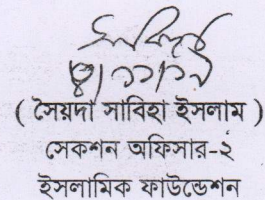 ( সৈয়দা সাবিহা ইসলাম )
সেকশন অফিসার-২
ইসলামিক ফাউন্ডেশন